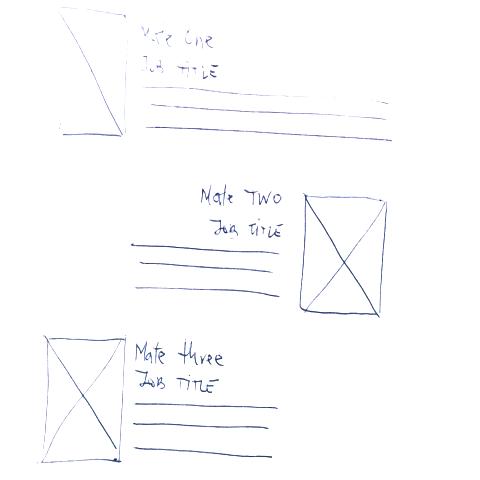 Mate One
Job TITLE
Mate TWO
Job TITLE
Mate three
Job TITLE